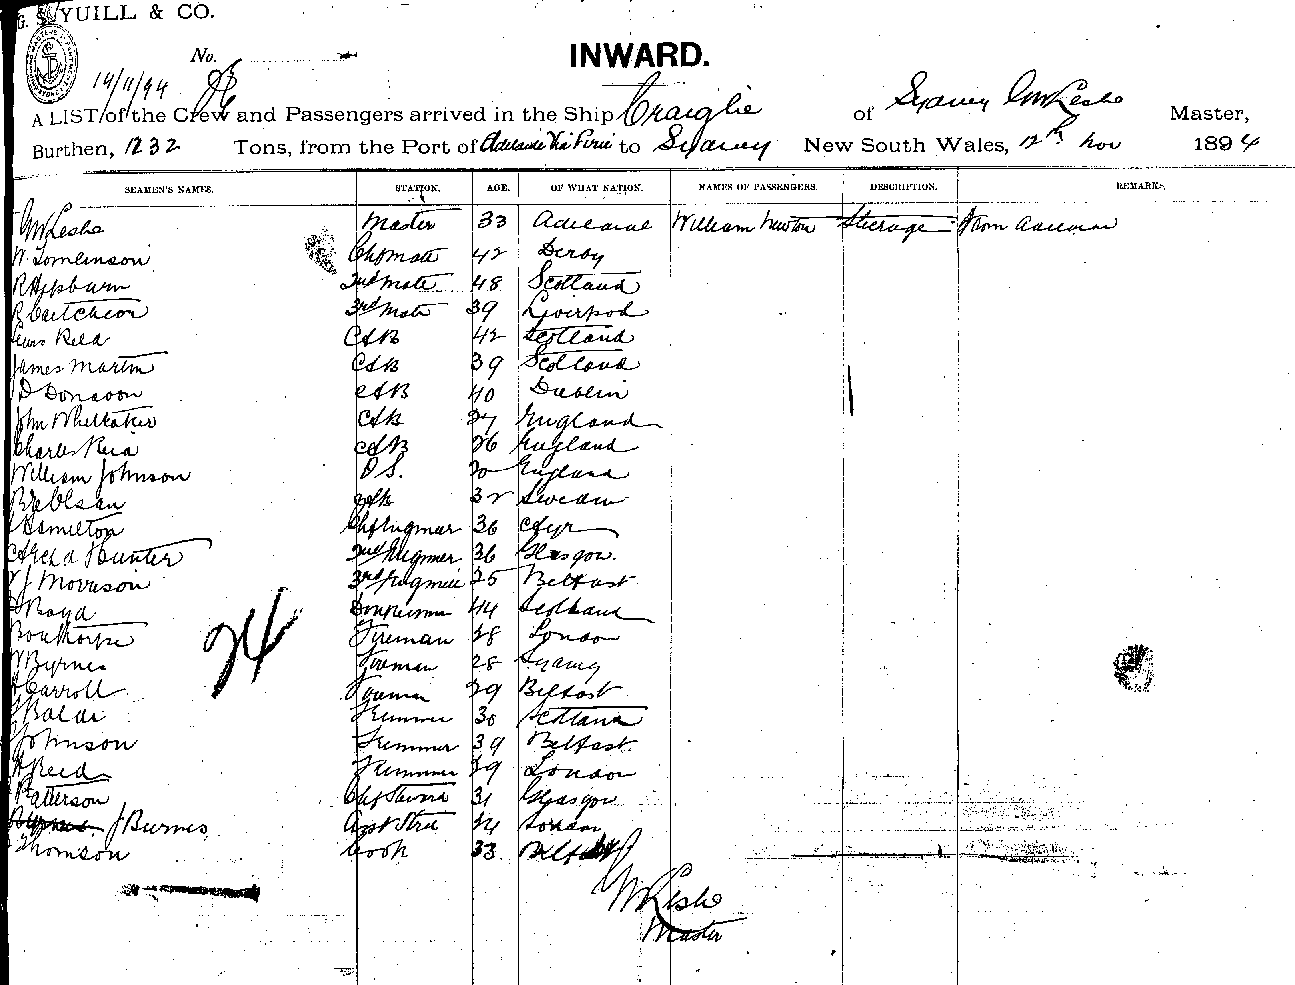 G. S. YUILL & CO.
No.
INWARD.
14/11/94
A LIST of the Crew and Passengers arrived in the Ship Craiglie of Sydney Leslie Master,
Burthen, 1232 Tons, from the Port of Adelaide Via Pirie to Sydney New South Wales, 12th Nov 1894
SEAMEN'S NAMES. STATION. AGE. OF WHAT NATION. NAMES OF PASSENGERS. DESCRIPTION. REMARKS.
Leslie Master 33 Adelaide William Newton Steerage From Adelaide
W. Tomlinson Chf mate 42 Derby
R Hepburn 2nd mate 48 Scotland
R 3rd mate 39 Liverpool
Reid AB 42 Scotland
James Martin AB 39 Scotland
D AB 40 Dublin
John Whittaker AB 27 England
Charles Reid AB 26 England
William Johnson O.S. 20 England
AB 32 Sweden
Hamilton Chf Engineer 36 Ayr
Archd Hunter 2nd Engineer 36 Glasgow
J Morrison 3rd Engineer 25 Belfast
Boyd Donkeyman 44 Scotland
Fireman 28 London
Byrnes Fireman 28 Sydney
Carroll Fireman 29 Belfast
Trimmer 30 Scotland
Johnson Trimmer 39 Belfast
Reid Trimmer 29 London
Patterson Chf Steward 31 Glasgow
J Burnes Asst Stew 24 London
Thomson Cook 33 Belfast
24
Leslie
Master